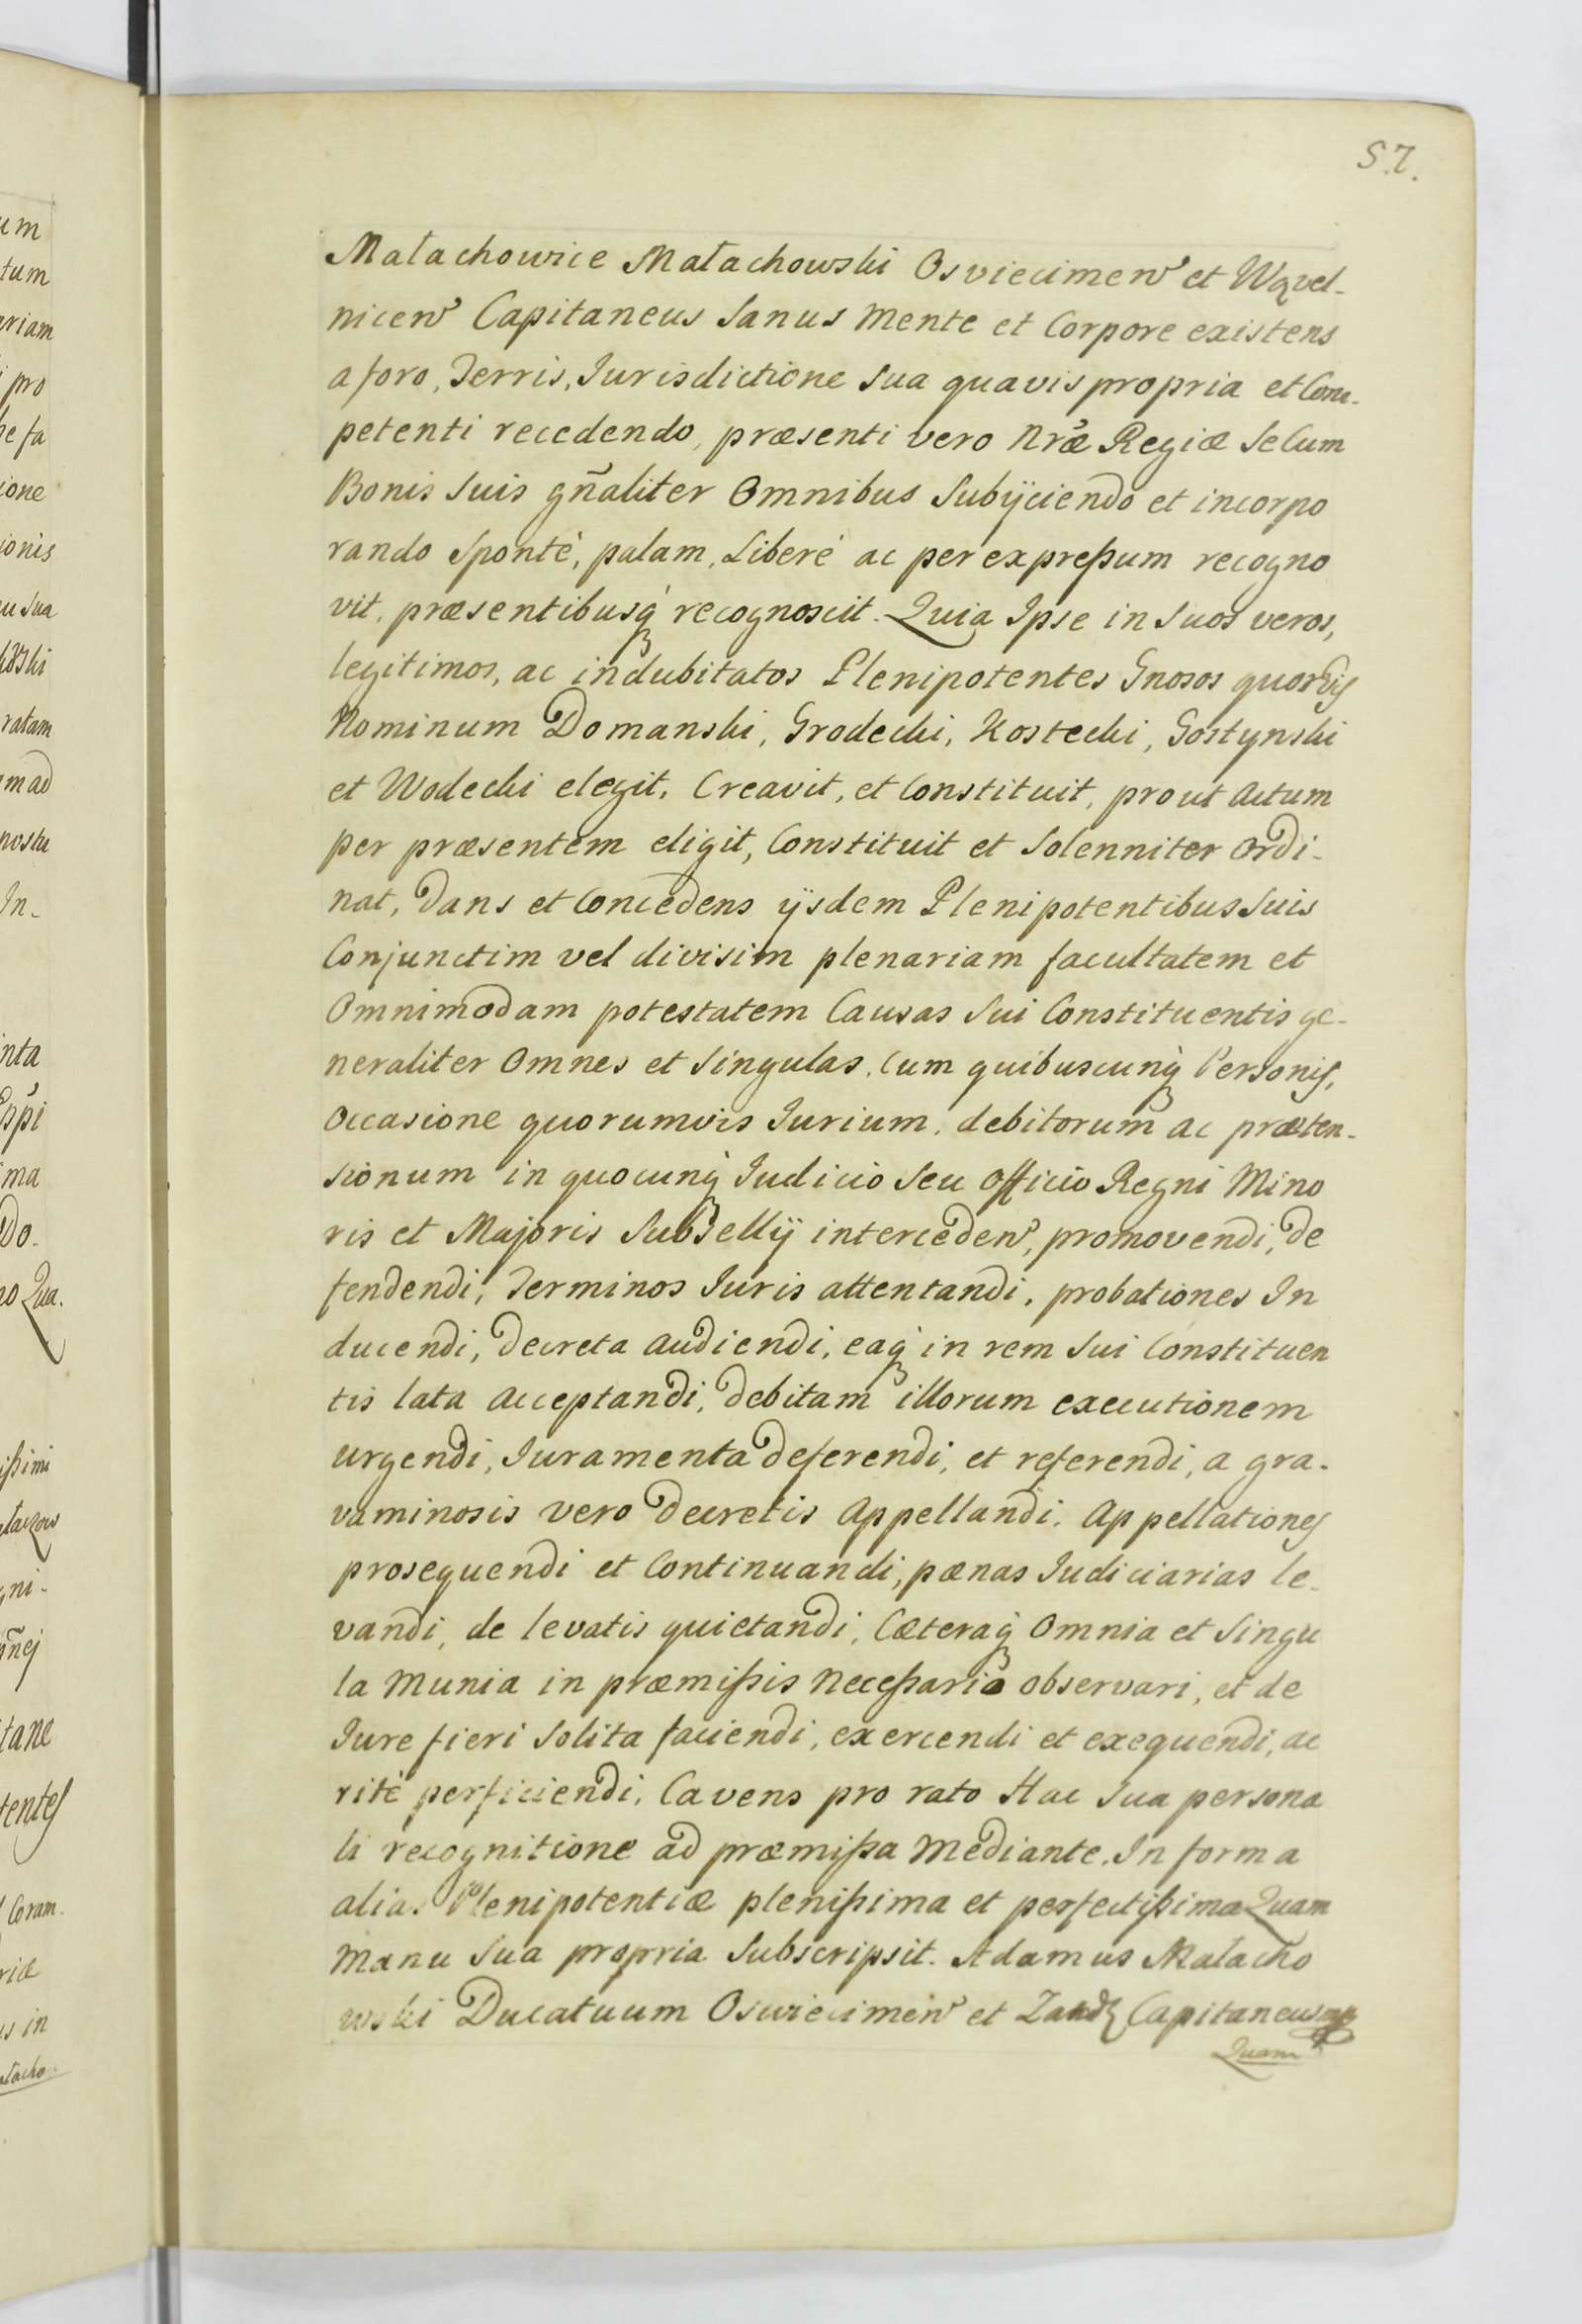 um
tum
ariam
pro
fa
ione
ionis
sua
ratam
mad
In-
nta
ma
Do.
Qua.
ni-
tane
tentes
Coram
in
57.
Małachowice Małachowski Osviecimen et Wąvel-
nicen Capitaneus Sanus mente et Corpore existens
a foro, Terris, Iurisdictione Sua quavis propria et Com-
petenti recedendo, præsenti vero Nræ Regiæ Se Cum
Bonis Suis gñaliter Omnibus Subijciendo et incorpo
rando Spontè, palam, Liberè ac per expreßum recogno
vit, præsentibusq́ recognoscit. Quia Ipse in Suos veros,
legitimos, ac indubitatos Plenipotentes Gnosos quorvis
Nominum Domanski, Grodecki, Kostecki, Gostynski
et Wodecki elegit, Creavit, et Constituit, prout Actum
per præsentem eligit, Constituit et Solenniter Ordi-
nat, Dans et Concedens ijsdem Plenipotentibus Suis
Conjunctim vel divisim plenariam facultatem et
Omnimodam potestatem Causas Sui Constituentis ge-
neraliter Omnes et Singulas, Cum quibuscunq́ Personis,
Occasione quorumvis Iurium, debitorum ac præten-
sionum in quocunq́ Iudicio Seu Officio Regni Mino
ris et Majoris Subsellij interceden, promovendi, de
fendendi, Terminos Iuris attentandi, probationes In
ducendi, Decreta audiendi, eaq́ in rem Sui Constituen
tis lata acceptandi, Debitam illorum executionem
urgendi, Iuramenta Deferendi, et referendi, a gra-
vaminosis vero Decretis Appellandi, Appellationes
prosequendi et Continuandi, pænas Iudiciarias le-
vandi, de levatis quietandi, Cæteraq́ Omnia et Singu
la Munia in præmißis neceßario observari, et de
Iure fieri Solita faciendi, exercendi et exequendi, ac
ritè perficiendi, Cavens pro rato Hac Sua persona
li recognitione ad præmißa Mediante. In forma
alias Plenipotentiæ plenißima et perfectißima Quam
Manu Sua propria Subscripsit. Adamus Małacho
wski Ducatuum Oswiecimen et Zand Capitaneus mp
Quam